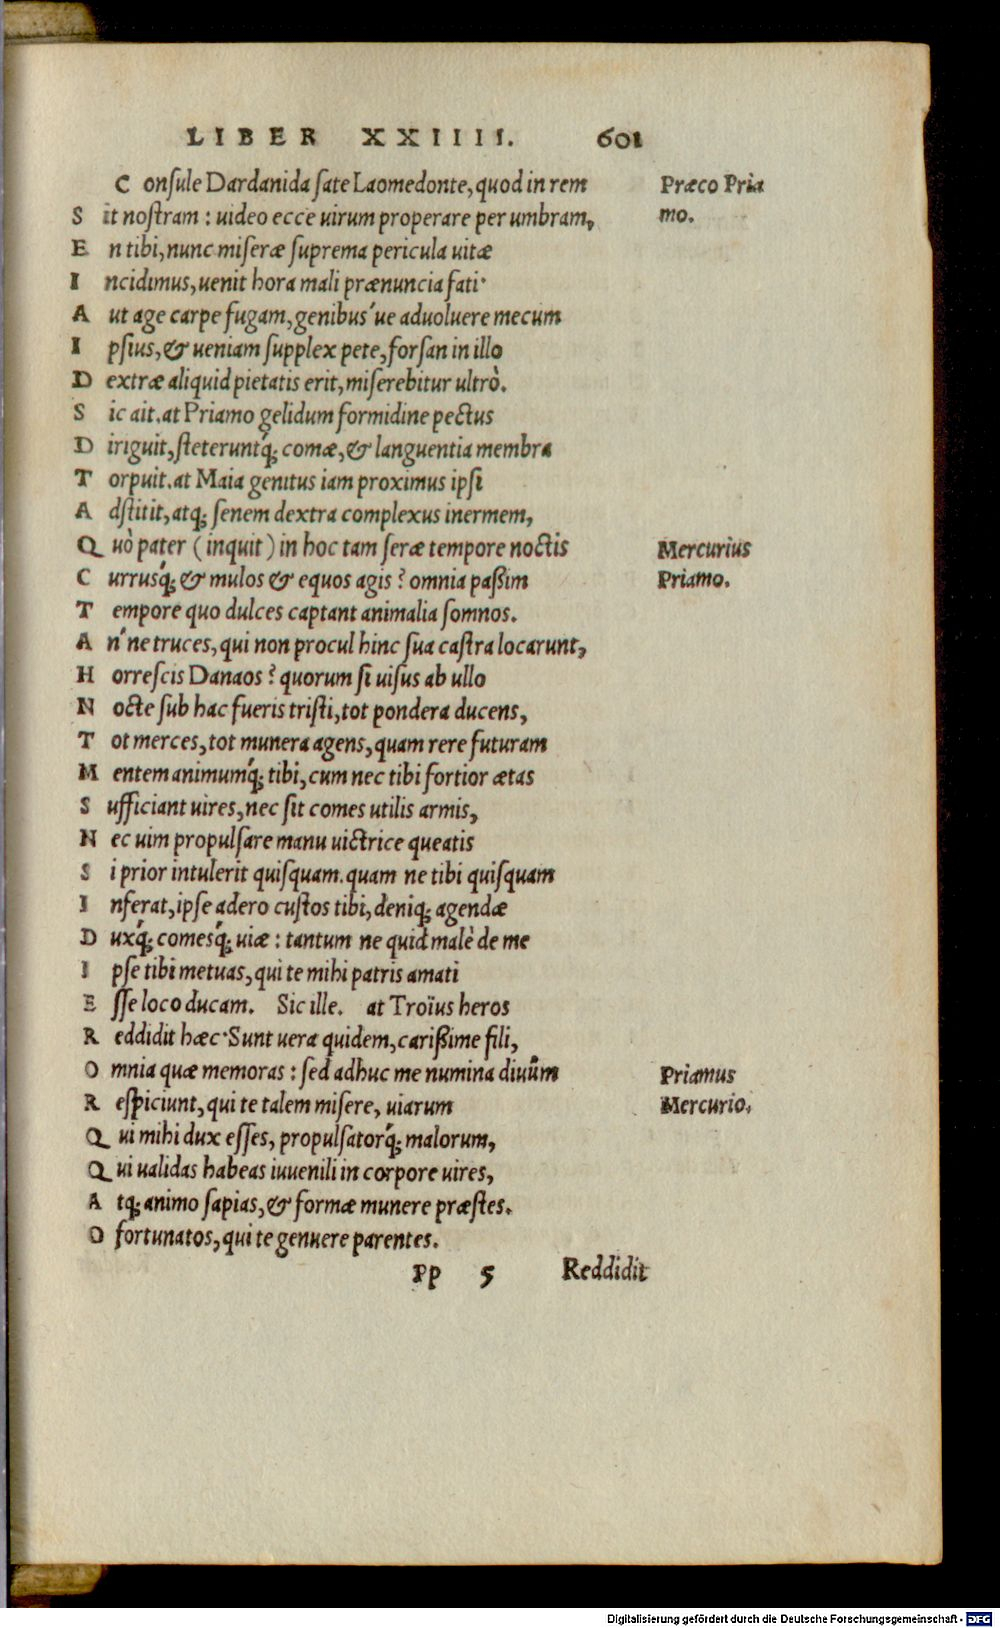 LIBER XXIIII. 601
Consule Dardanida sate Laomedonte, quod in rem
Præco Pria
Sit nostram : uideo ecce uirum properare per umbram,
mo.
En tibi, nunc miseræ suprema pericula uitæ
Incidimus, uenit hora mali prænuncia fati·
Aut age carpe fugam, genibus´ue aduoluere mecum
Ipsius, & ueniam supplex pete, forsan in illo
Dextræ aliquid pietatis erit, miserebitur ultrò.
Sic ait. at Priamo gelidum formidine pectus
Diriguit, steteruntq́; comæ, & languentia membra
Torpuit. at Maia genitus iam proximus ipsi
Adstitit, atq; senem dextra complexus inermem,
Quò pater (inquit) in hoc tam seræ tempore noctis
Mercurius
Currusq́; & mulos & equos agis? omnia paßim
Priamo.
Tempore quo dulces captant animalia somnos.
An´ne truces, qui non procul hinc sua castra locarunt,
Horrescis Danaos? quorum si uisus ab ullo
Nocte sub hac fueris tristi, tot pondera ducens,
Tot merces, tot munera agens, quam rere futuram
Mentem animumq́; tibi, cum nec tibi fortior ætas
Sufficiant uires, nec sit comes utilis armis,
Nec uim propulsare manu uictrice queatis
Si prior intulerit quisquam. quam ne tibi quisquam
Inferat, ipse adero custos tibi, deniq; agendæ
Duxq́; comesq́; uiæ : tantum ne quid malè de me
Ipse tibi metuas, qui te mihi patris amati
Esse loco ducam. Sic ille. at Troïus heros
Reddidit hæc· Sunt uera quidem, carißime fili,
Omnia quæ memoras : sed adhuc me numina diuûm
Priamus
Respiciunt, qui te talem misere, uiarum
Mercurio.
Qui mihi dux esses, propulsatorq́; malorum,
Qui ualidas habeas iuuenili in corpore uires,
Atq; animo sapias, & formæ munere præstes.
O fortunatos, qui te genuere parentes.
Pp 5 Reddidit
Digitalisierung gefördert durch die Deutsche Forschungsgemeinschaft - DFG